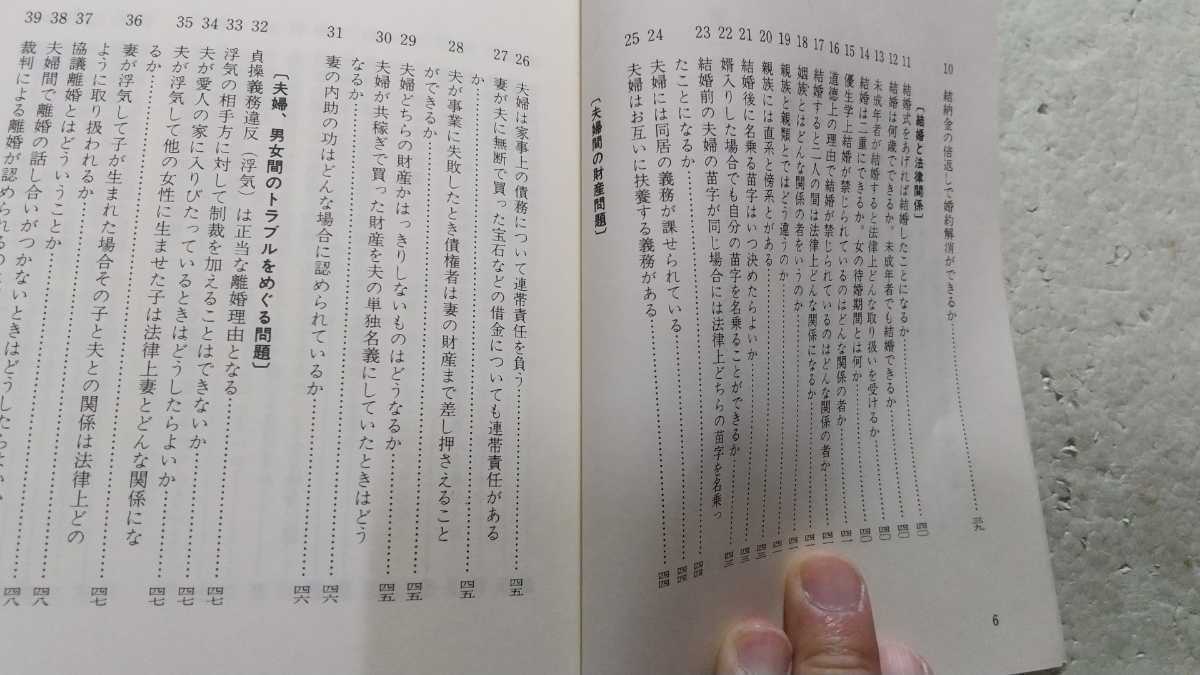 10 結納金の倍返しで婚約解消ができるか……三九
〔結婚と法律関係〕
11 結婚式をあげれば結婚したことになるか……四〇
12 結婚は何歳でできるか。未成年者でも結婚できるか……四〇
13 未成年者が結婚すると法律上どんな取り扱いを受けるか……四〇
14 結婚は二重にできるか。女の待婚期間とは何か……四〇
15 優生学上結婚が禁じられているのはどんな関係の者か……四一
16 道徳上の理由で結婚が禁じられているのはどんな関係の者か……四一
17 結婚すると二人の間は法律上どんな関係になるか……四一
18 姻族とはどんな関係の者をいうのか……四一
19 親族と親類とではどう違うのか……四一
20 親族には直系と傍系とがある……四二
21 結婚後に名乗る苗字はいつ決めたらよいか……四三
22 婿入りした場合でも自分の苗字を名乗ることができるか……四三
23 結婚前の夫婦の苗字が同じ場合には法律上どちらの苗字を名乗っ
たことになるか……四四
24 夫婦には同居の義務が課せられている……四四
25 夫婦はお互いに扶養する義務がある……四四
〔夫婦間の財産問題〕
6
26 夫婦は家事上の債務について連帯責任を負う……四五
27 妻が夫に無断で買った宝石などの借金についても連帯責任がある
か……四五
28 夫が事業に失敗したとき債権者は妻の財産まで差し押さえること
ができるか……四五
29 夫婦どちらの財産かはっきりしないものはどうなるか……四五
30 夫婦が共稼ぎで買った財産を夫の単独名義にしていたときはどう
なるか……四六
31 妻の内助の功はどんな場合に認められているか……四六
〔夫婦、男女間のトラブルをめぐる問題〕
32 貞操義務違反（浮気）は正当な離婚理由となる……四七
33 浮気の相手方に対して制裁を加えることはできないか……四七
34 夫が愛人の家に入りびたっているときはどうしたらよいか……四七
35 夫が浮気して他の女性に生ませた子は法律上妻とどんな関係にな
るか……四七
36 妻が浮気して子が生まれた場合その子と夫との関係は法律上どの
ように取り扱われるか……四七
37 協議離婚とはどういうことか……四八
38 夫婦間で離婚の話し合いがつかないときはどうしたらよいか
39 裁判による離婚が認められるの